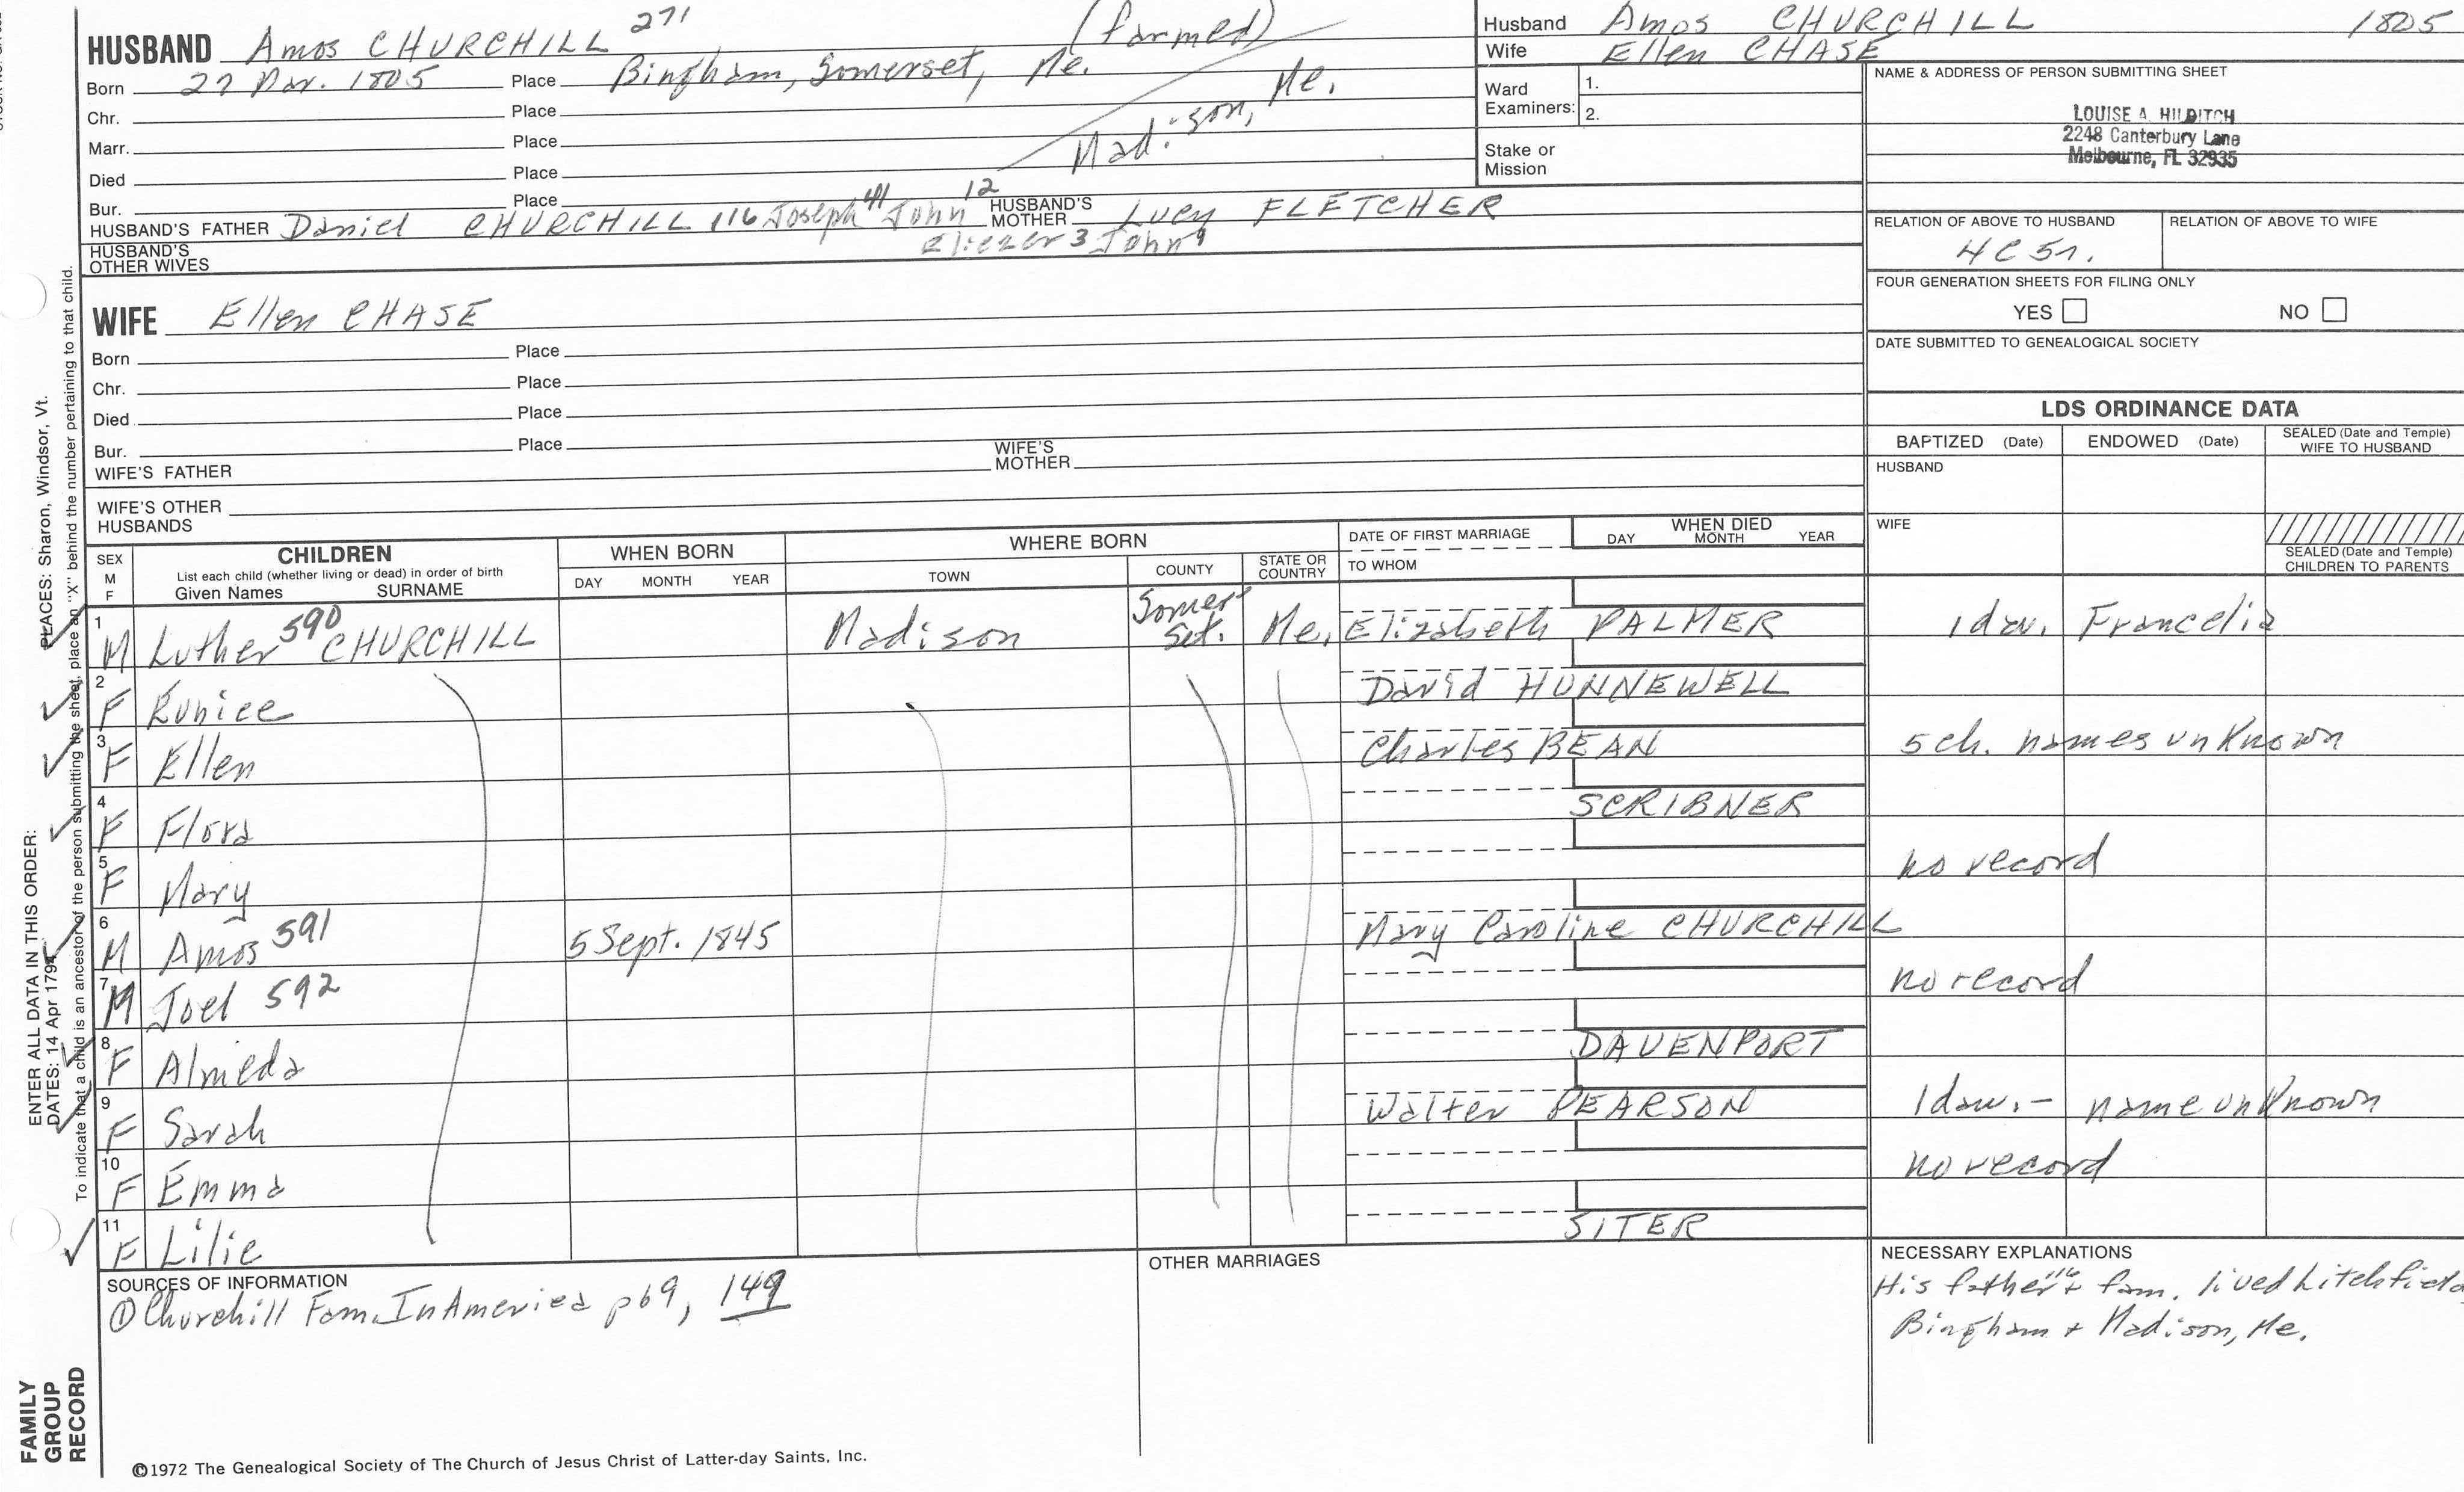 HUSBAND Amos CHURCHILL 271 (farmed)
Born 27 Mar. 1805 Place Bingham, Somerset, Me.
Chr. Place
Marr. Place Madison, Me.
Died Place
Bur. Place
HUSBAND'S FATHER Daniel CHURCHILL 116 Joseph 41 John 12 HUSBAND'S MOTHER Lucy FLETCHER
Eliezer 3 John
HUSBAND'S OTHER WIVES
WIFE Ellen CHASE
Born Place
Chr. Place
Died Place
Bur. Place
WIFE'S FATHER WIFE'S MOTHER
WIFE'S OTHER HUSBANDS
Husband Amos CHURCHILL 1805
Wife Ellen CHASE
Ward Examiners: 1.
2.
Stake or Mission
NAME & ADDRESS OF PERSON SUBMITTING SHEET
LOUISE A. HILDITCH
2248 Canterbury Lane
Melbourne, FL 32935
RELATION OF ABOVE TO HUSBAND RELATION OF ABOVE TO WIFE
4C5r.
FOUR GENERATION SHEETS FOR FILING ONLY
YES NO
DATE SUBMITTED TO GENEALOGICAL SOCIETY
LDS ORDINANCE DATA
BAPTIZED (Date) ENDOWED (Date) SEALED (Date and Temple) WIFE TO HUSBAND
HUSBAND
WIFE
SEALED (Date and Temple) CHILDREN TO PARENTS
SEX M F CHILDREN WHEN BORN WHERE BORN DATE OF FIRST MARRIAGE WHEN DIED
List each child (whether living or dead) in order of birth
Given Names SURNAME DAY MONTH YEAR TOWN COUNTY STATE OR COUNTRY TO WHOM DAY MONTH YEAR
1 M Luther 590 CHURCHILL Madison Somerset. Me. Elizabeth PALMER 1 dau. Francelia
2 F Eunice David HUNNEWELL
3 F Ellen Charles BEAN 5 ch. names unknown
4 F Flora SCRIBNER
5 F Mary no record
6 M Amos 591 5 Sept. 1845 Mary Caroline CHURCHILL
7 M Joel 592 no record
8 F Almeda DAVENPORT
9 F Sarah Walter PEARSON 1 dau. - name unknown
10 F Emma no record
11 F Lilie SITER
SOURCES OF INFORMATION
① Churchill Fam. In America p69, 149
OTHER MARRIAGES
NECESSARY EXPLANATIONS
His father 116 & fam. lived Litchfield
Bingham + Madison, Me.
©1972 The Genealogical Society of The Church of Jesus Christ of Latter-day Saints, Inc.
FAMILY GROUP RECORD
ENTER ALL DATA IN THIS ORDER:
DATES: 14 Apr 1794 PLACES: Sharon, Windsor, Vt.
To indicate that a child is an ancestor of the person submitting the sheet, place an "X" behind the number pertaining to that child.